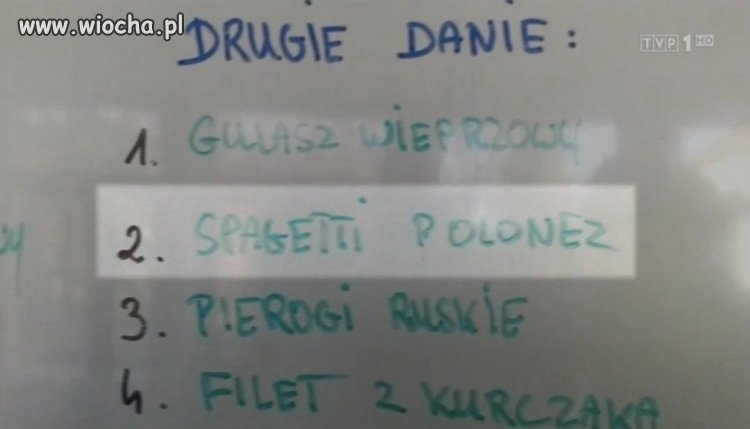 www.wiocha.pl
DRUGIE DANIE:
TVP1 HD
1. GULASZ WIEPRZOWY
2. SPAGETTI POLONEZ
3. PIEROGI RUSKIE
4. FILET Z KURCZAKA